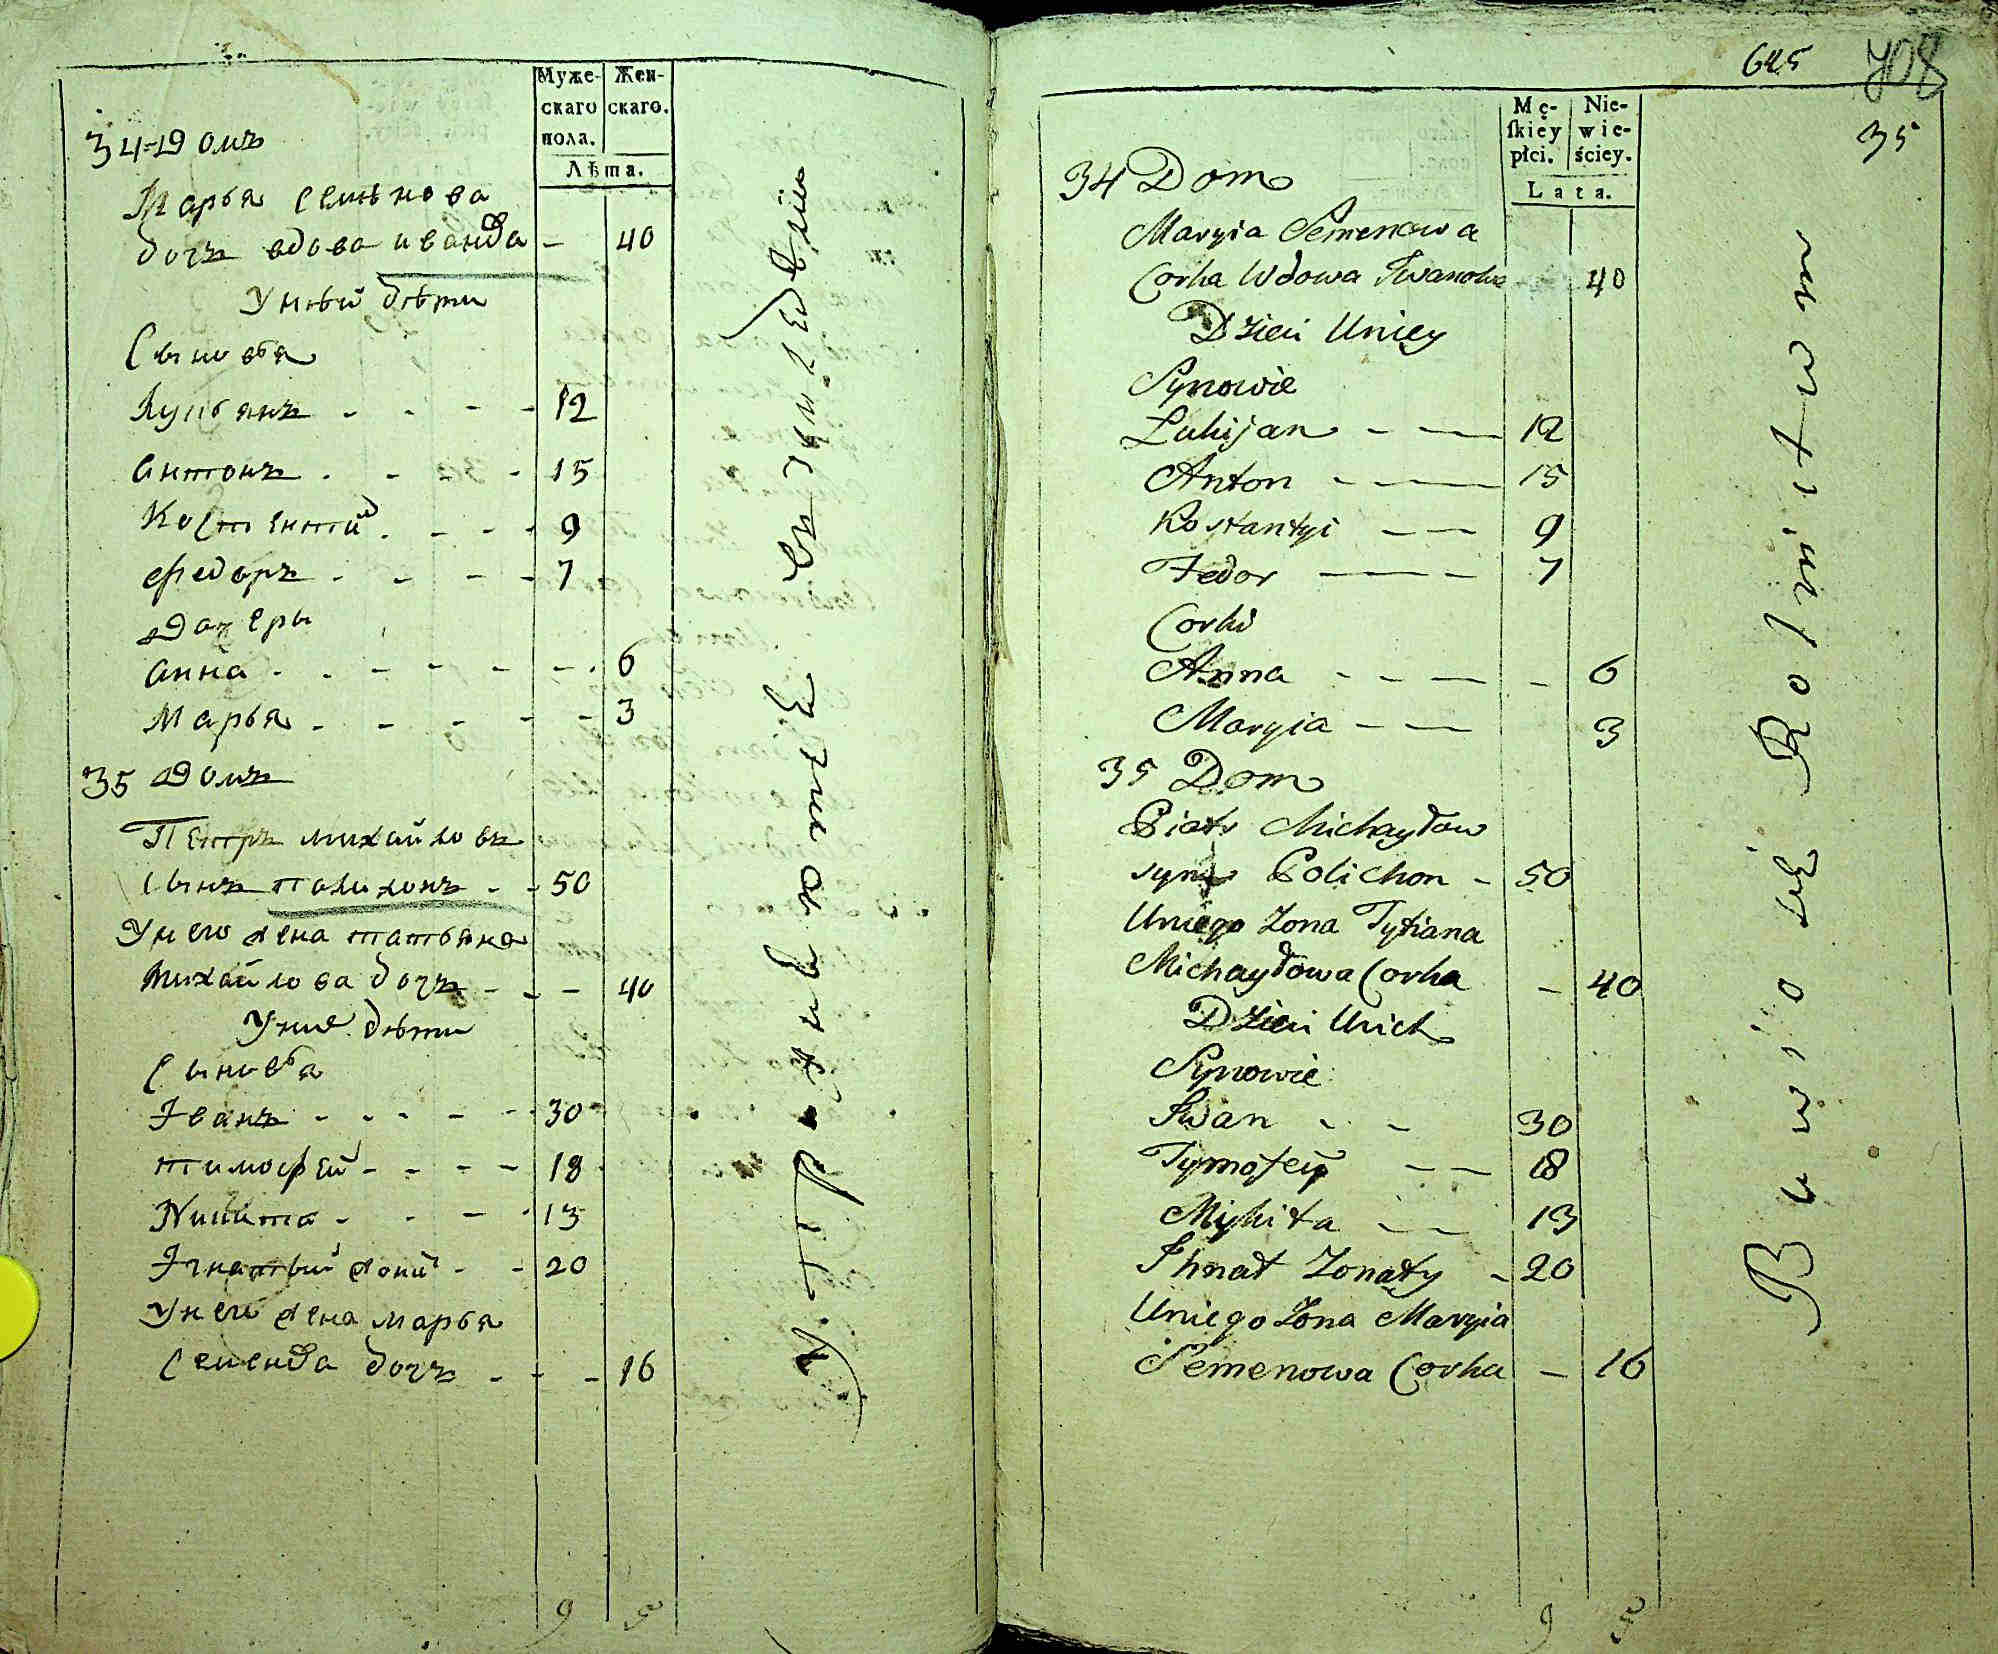 Муже-
скаго
пола.
Жен-
скаго.
Лѣта.
34 Домъ
Марья семѣнова
дочь вдова иванова - 40
Унѣй дѣти
Сыновья
Лукьянъ - - - - 12
антонъ - - - - 15
Костентий - - - - 9
федоръ - - - - 7
дочеры
анна - - - - - - 6
Марья - - - - - 3
35 Домъ
Петръ михайловъ
сынъ полихонъ - - 50
Унего жена татьяна
михайлова дочь - - - 40
Уних дѣти
Сыновья
Іванъ - - - - - 30
тимофей - - - - 18
Никита - - - - 13
Ігнатый жонат - - 20
Унего жена марья
Семенова дочь - - - 16
9
625
708
35
Mę-
ſkiey
płci.
Nie-
wie-
ściey.
Lata.
34 Dom
Maryia Semenowa
Corka Wdowa Iwanowa 40
Dzieci Uniey
Synowie
Lukijan - - 12
Anton - - - 15
Kostantyi - - 9
Fedor - - 7
Corki
Anna - - - - - 6
Maryia - - 3
35 Dom
Piotr Michayłow
syn Polichon - 50
Uniego Zona Tytiana
Michayłowa Corka - 40
Dzieci Unich
Synowie
Iwan - - 30
Tymofeiy - - 18
Mykita - - 13
Ihnat Zonaty - 20
Uniego Zona Maryia
Semenowa Corka - 16
9